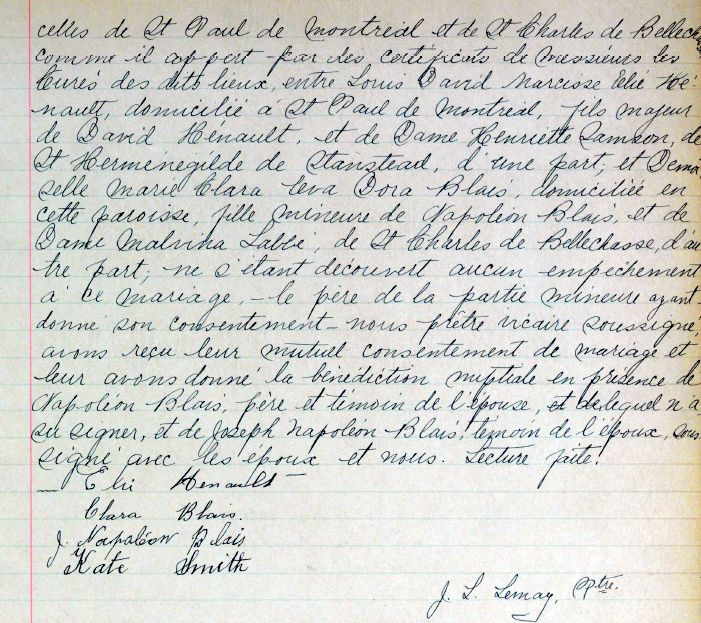 celles de St Paul de Montréal et de St Charles de Bellech
comme il appert par des certificats de messieurs les
Curés des dits lieux, entre Louis David Narcisse Elié Hé-
nault, domicilié à St Paul de Montréal, fils majeur
de David Hénault, et de Dame Henriette Samson, de
St Herménégilde de Stanstead, d'une part; et Demoi
selle Marie Clara Eva Dora Blais, domiciliée en
cette paroisse, fille mineure de Napoléon Blais, et de
Dame Malvina Labbé, de St Charles de Bellechasse, d'au
tre part; ne s'étant découvert aucun empêchement
à ce mariage, - le père de la partie mineure ayant
donné son consentement - nous prêtre vicaire soussigné,
avons reçu leur mutuel consentement de mariage et
leur avons donné la bénédiction nuptiale en présence de
Napoléon Blais, père et témoin de l'épouse, lequel n'a
su signer, et de Joseph Napoléon Blais, témoin de l'époux, sous
signé avec les époux et nous. Lecture faite.
Eli Henault
Clara Blais.
J. Napoléon Blais
Kate Smith
J. L. Lemay, Ptre.